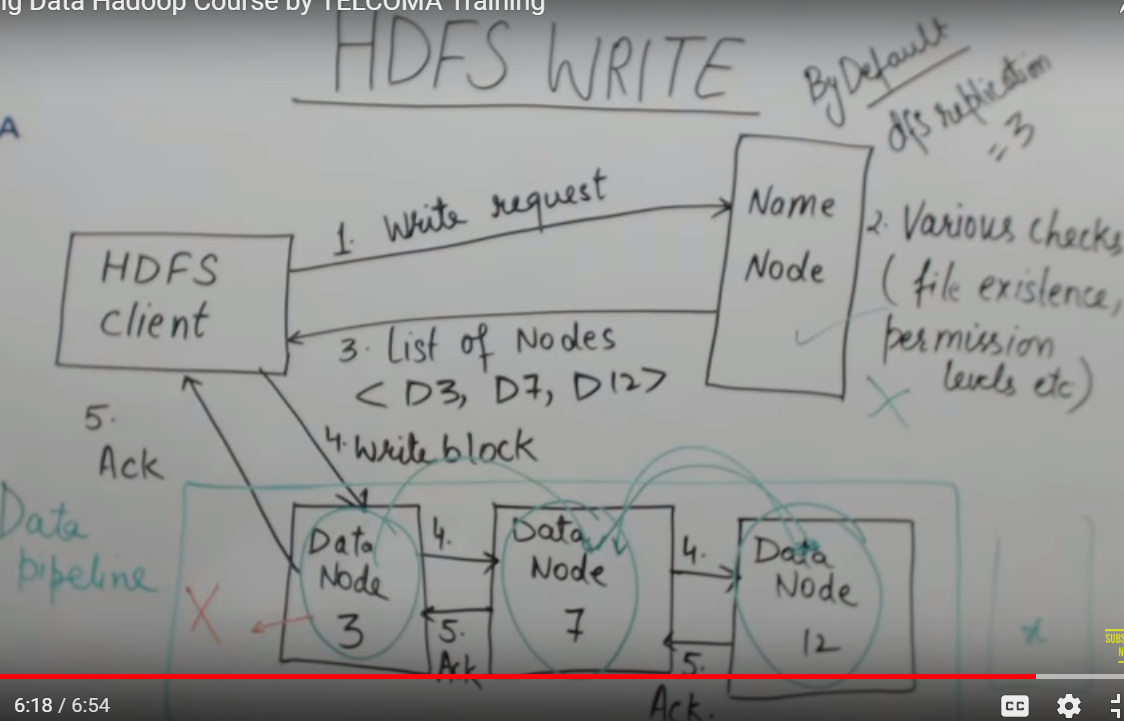 ng Data Hadoop Course by TELCOMA Training
HDFS WRITE
By Default
dfs replication
= 3
A
1. Write request
Name
Node
2. Various checks
( file existence,
permission
levels etc)
HDFS
client
3. List of Nodes
< D3, D7, D12>
4. Write block
5.
Ack
Data
pipeline
Data
Node
3
4.
5.
Ack
Data
Node
7
4.
5.
Ack.
Data
Node
12
X
X
x
SUBS
N
6:18 / 6:54
CC